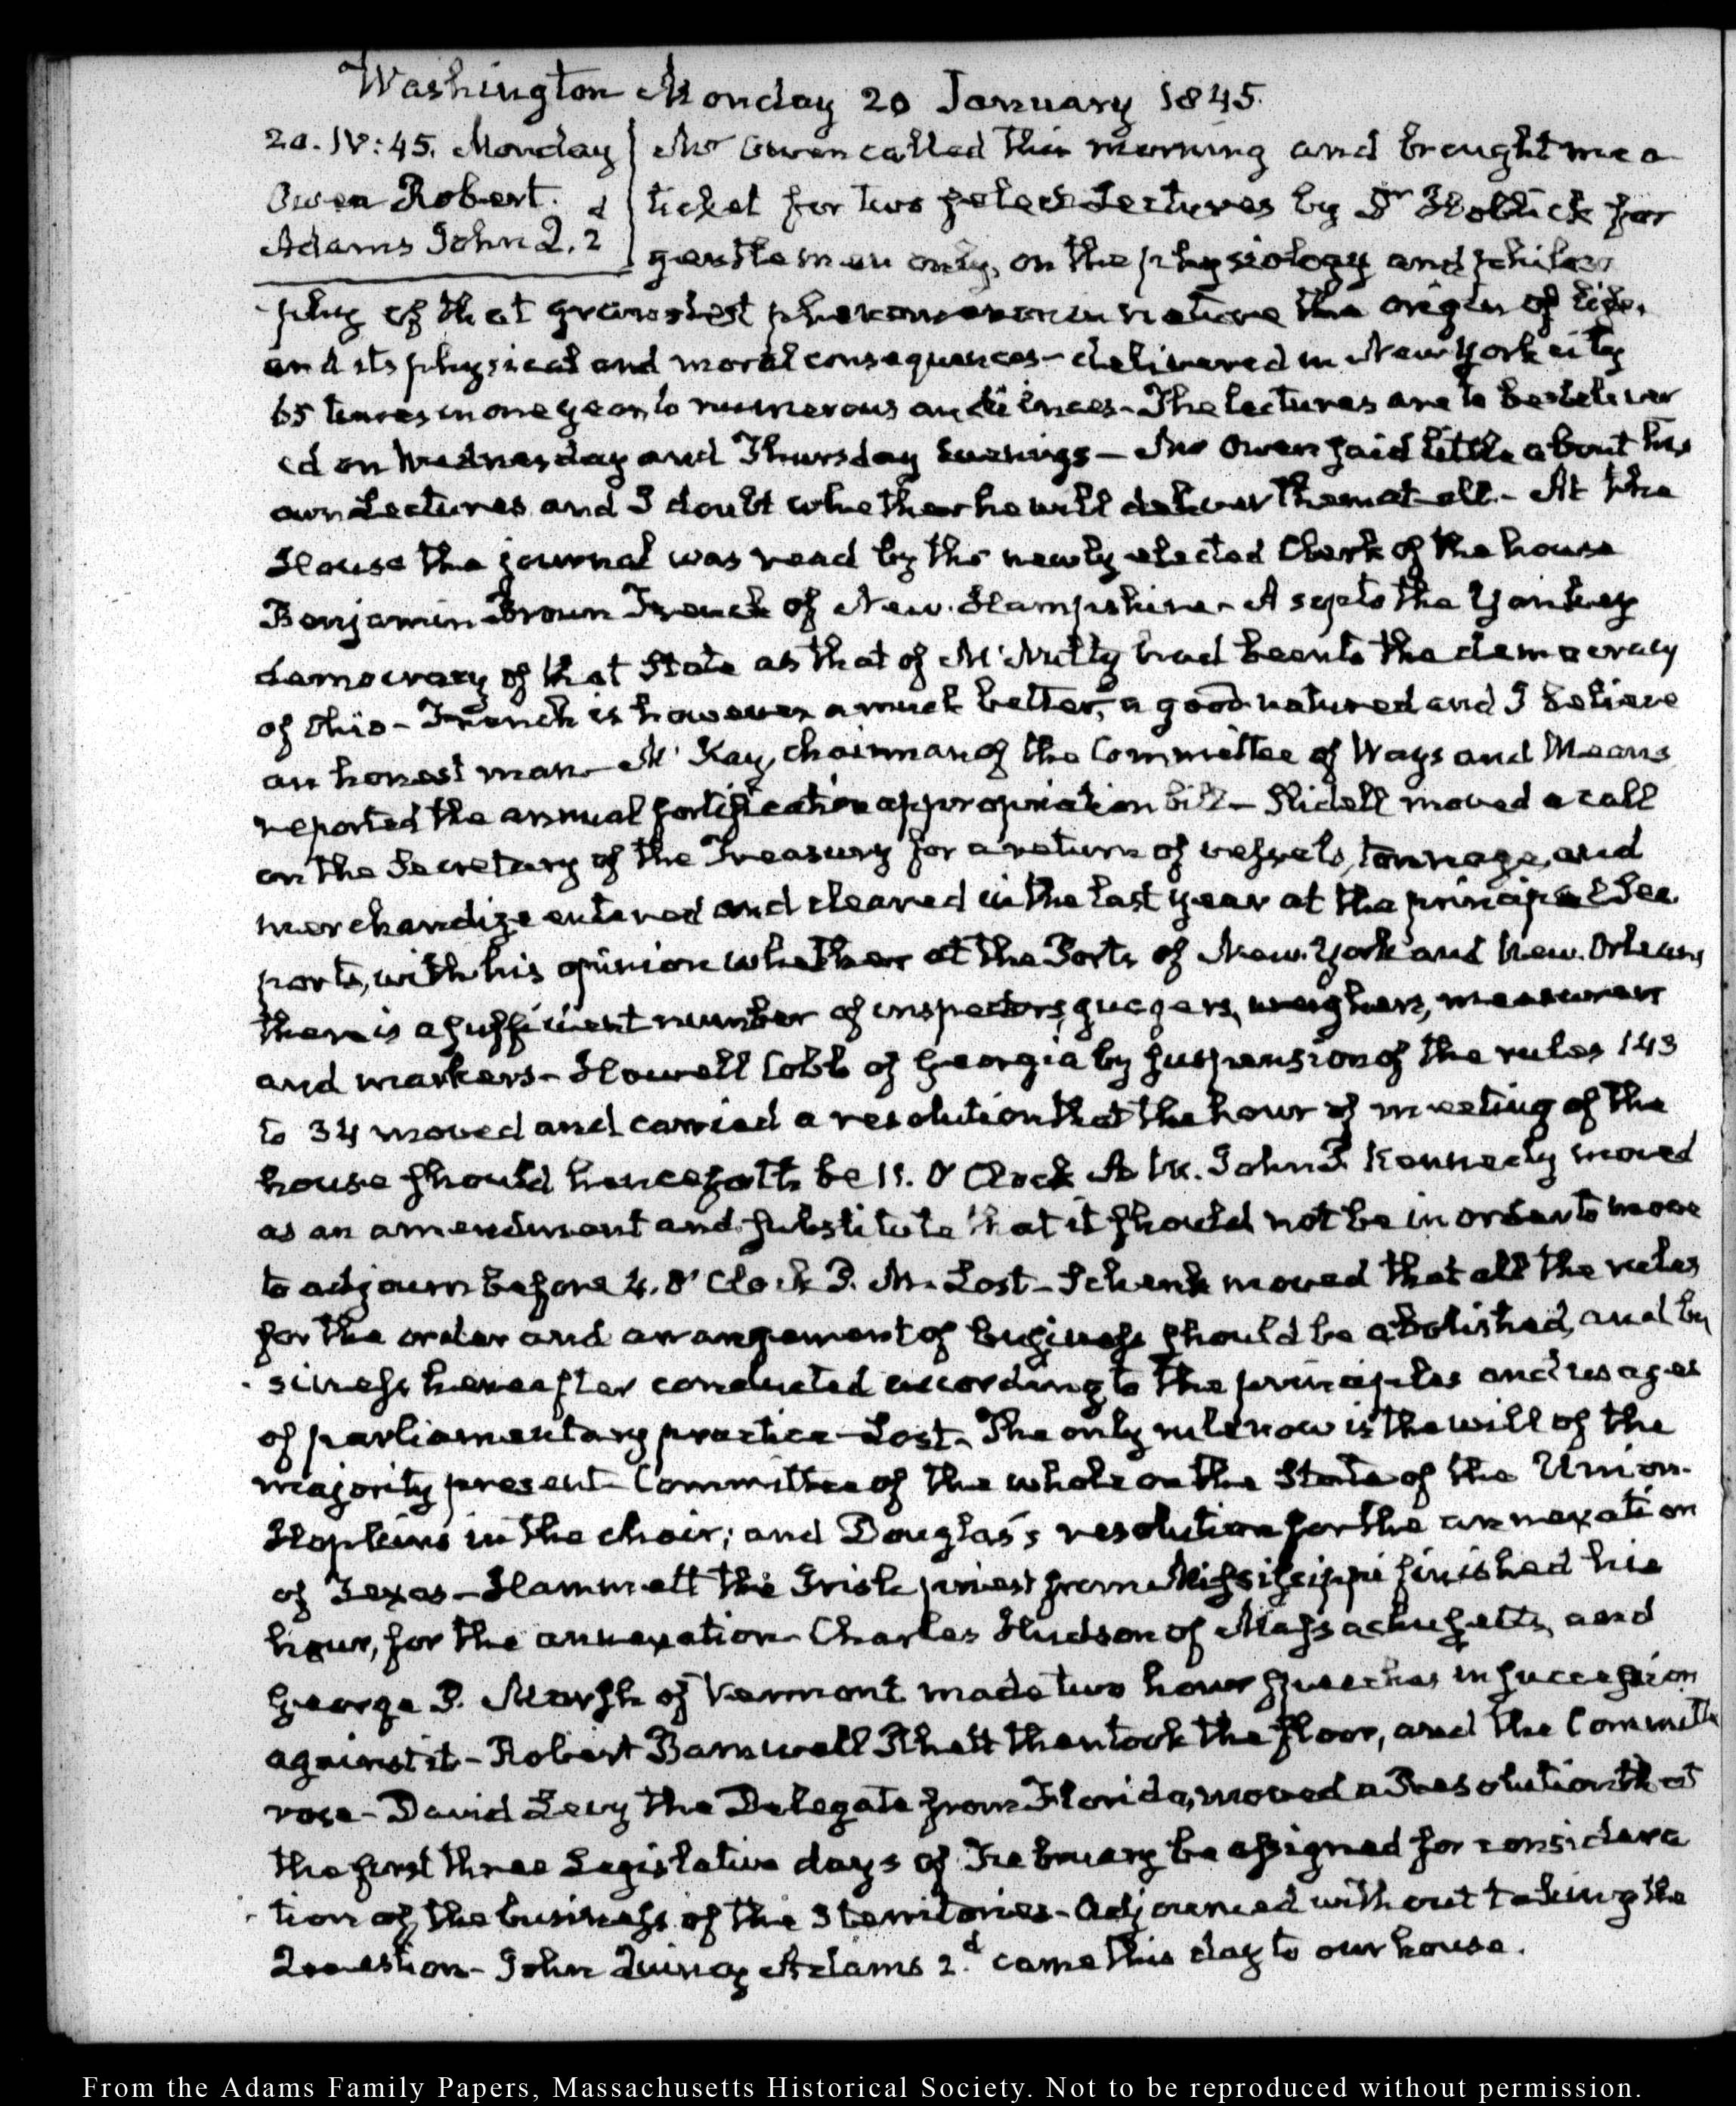 Washington Monday 20 January 1845.
20. IV:45. Monday
Owen Robert. d
Adams John Q. 2
Mr Owen called this morning and brought me a
ticket for two select Lectures by Dr Hollick for
gentlemen only, on the physiology and philoso
-phy of that grandest phenomenon in nature the origin of life,
and its physical and moral consequences - delivered in New York city
65 times in one year to numerous audiences - The lectures are to be deliver
ed on Wednesday and Thursday Evenings - Mr Owen said little about his
own Lectures and I doubt whether he will deliver them at all. - At the
House the journal was read by the newly elected Clerk of the house
Benjamin Brown French of New Hampshire - A sop to the Yankey
democracy of that State as that of Mc Nulty had been to the democracy
of Ohio - French is however a much better, a good natured and I believe
an honest man - Mc Kay, chairman of the Committee of Ways and Means
reported the annual fortification appropriation bill - Slidell moved a call
on the Secretary of the Treasury for a return of vessels, tonnage, and
merchandize entered and cleared in the last year at the principal Sea
ports, with his opinion whether at the Ports of New York and New Orleans
there is a sufficient number of inspectors, guagers, weighers, measurers
and markers - Howell Cobb of Georgia by suspension of the rules 143
to 34 moved and carried a resolution that the hour of meeting of the
house should henceforth be 11. O'Clock A.M. John P. Kennedy moved
as an amendment and substitute that it should not be in order to move
to adjourn before 4. O'Clock P.M. Lost - Schenk moved that all the rules
for the order and arrangement of business should be abolished, and bu
siness hereafter conducted according to the principles and usages
of parliamentary practice - Lost. The only rule now is the will of the
majority present - Committee of the whole on the State of the Union -
Hopkins in the chair; and Douglas's resolution for the annexation
of Texas - Hammett the Irish priest from Mississippi finished his
hour, for the annexation - Charles Hudson of Massachusetts, and
George P. Marsh of Vermont made two hour speeches in succession
against it - Robert Barnwell Rhett then took the floor, and the Committee
rose - David Levy the Delegate from Florida, moved a Resolution that
the first three Legislative days of February be assigned for considera
tion of the business of the Territories - Adjourned without taking the
Question - John Quincy Adams 2.d came this day to our house.
From the Adams Family Papers, Massachusetts Historical Society. Not to be reproduced without permission.